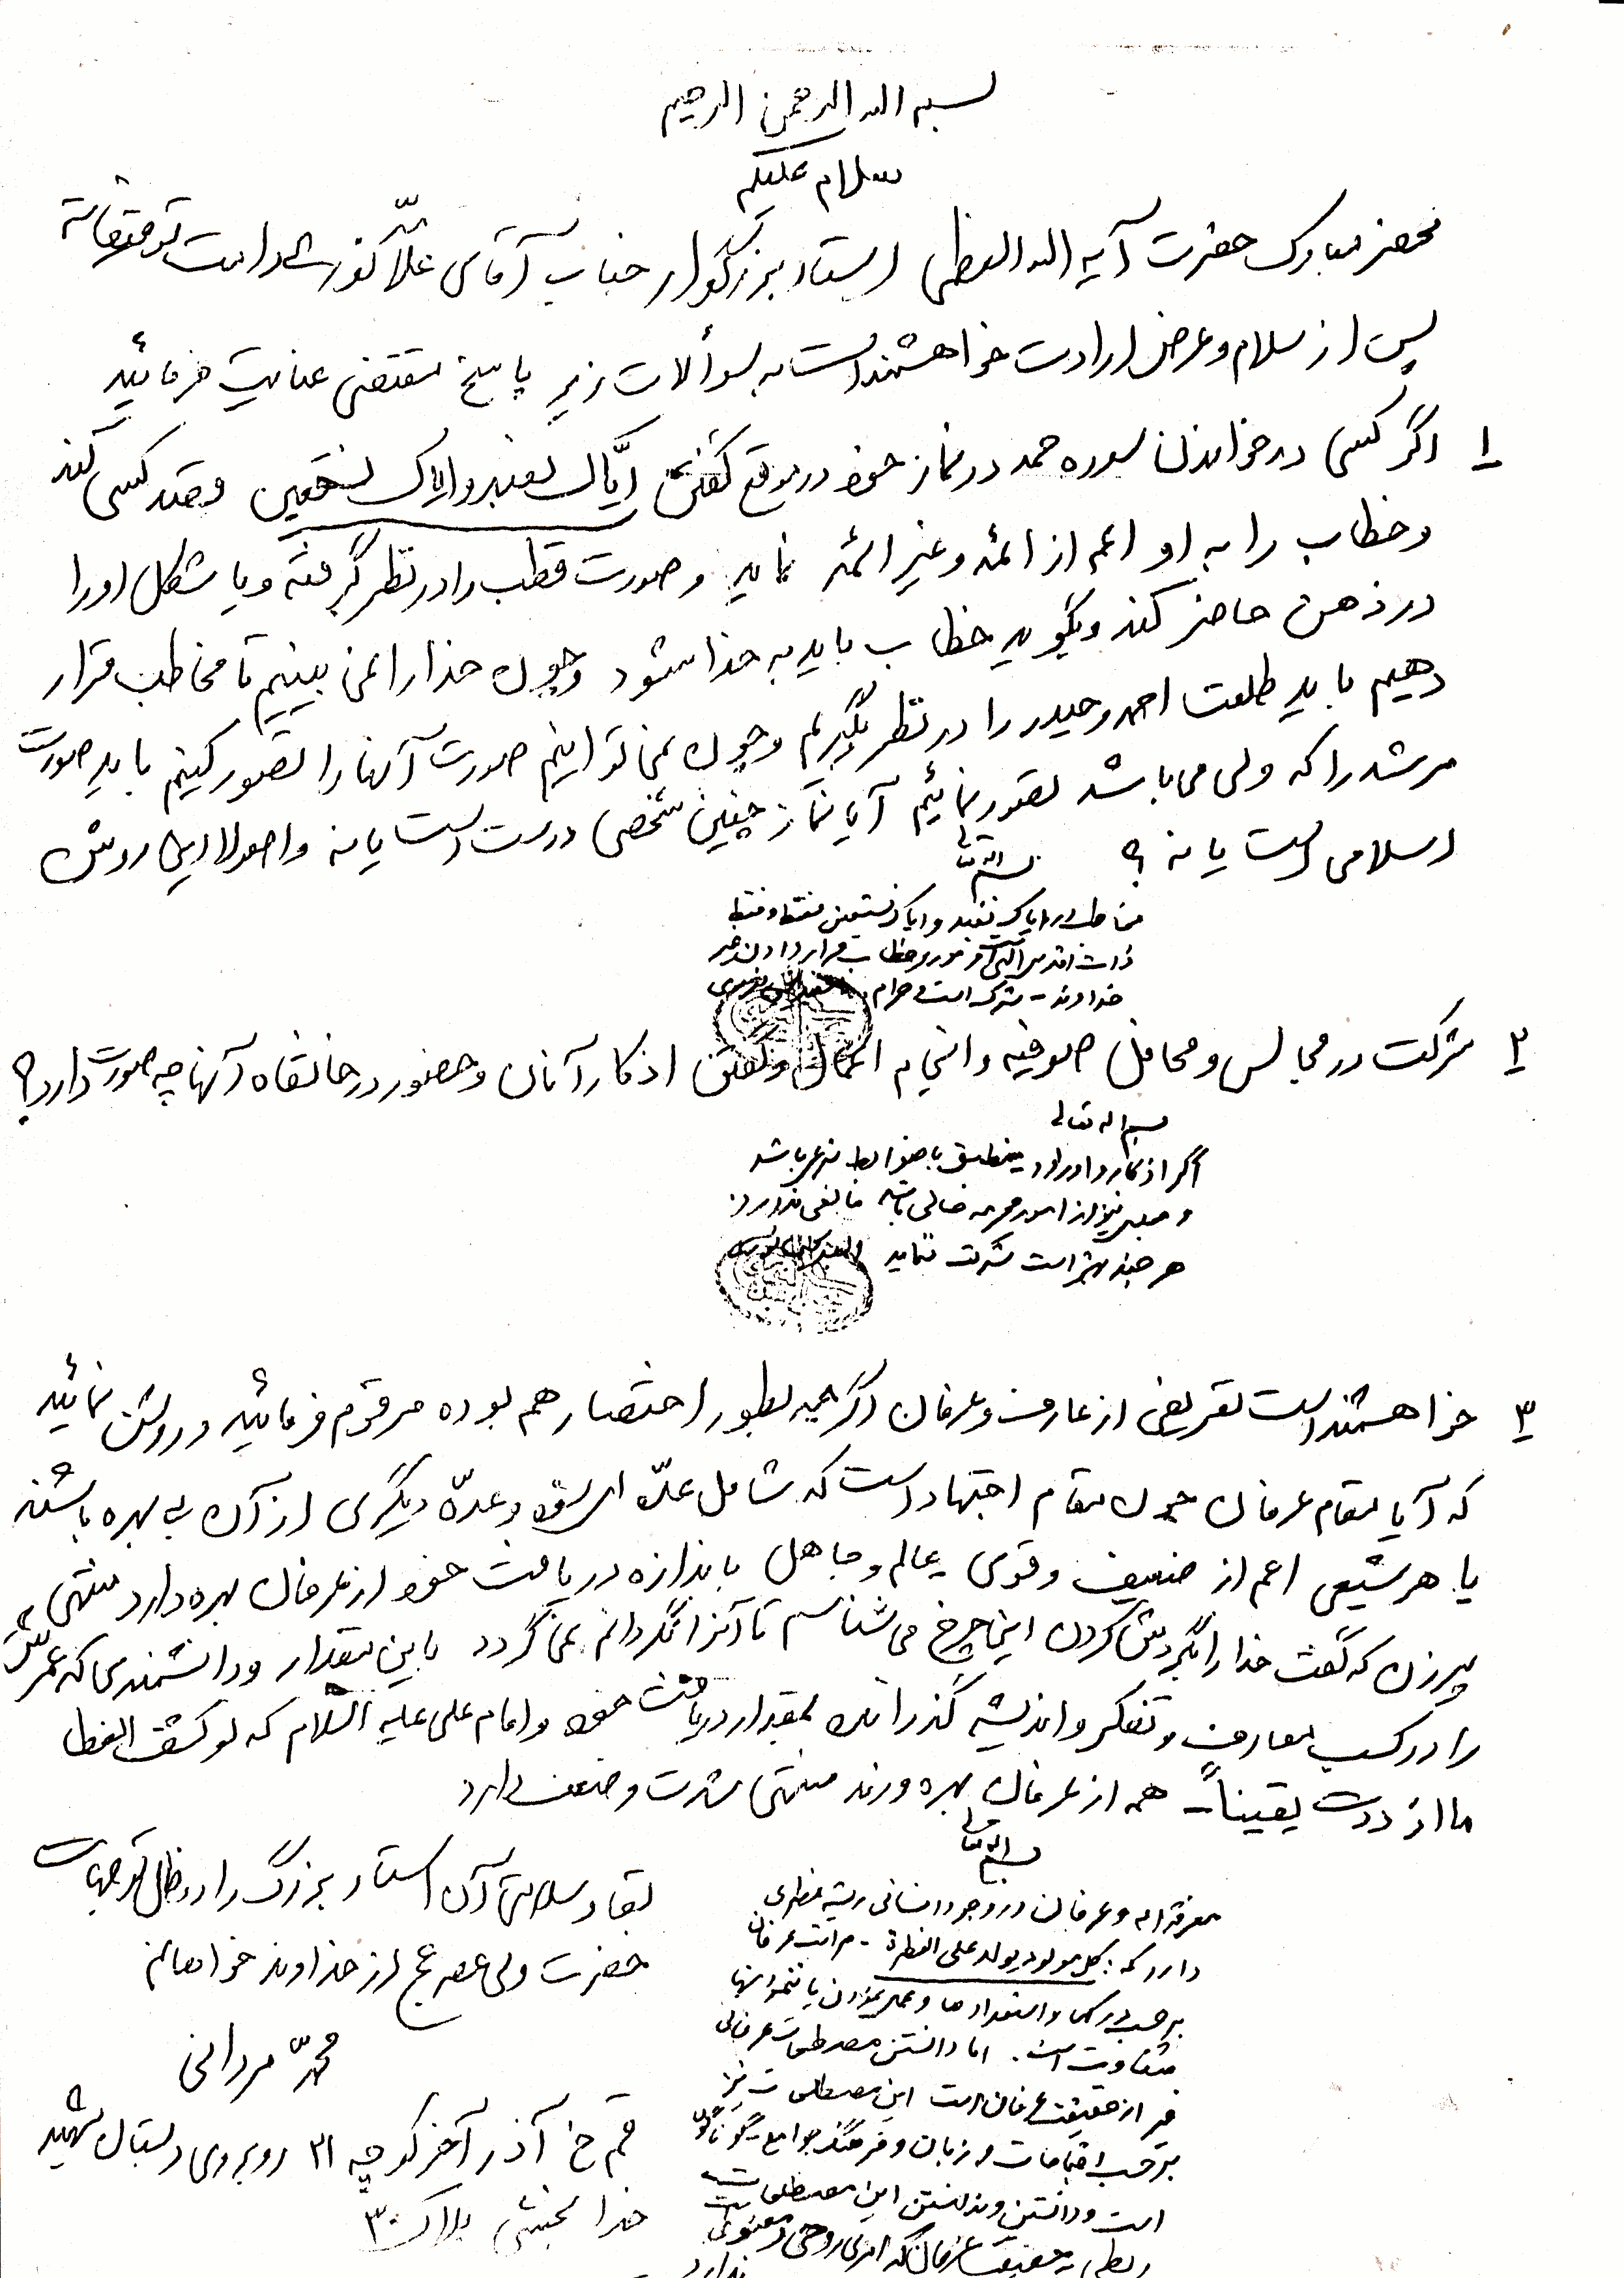 بسم الله الرحمن الرحیم
سلام علیکم
محضر مبارک حضرت آیه الله العظمی استاد بزرگوار جناب آقای دامت توفیقاته
پس از سلام و عرض ارادت خواهشمند است به سؤالات زیر پاسخ مقتضی عنایت فرمائید
۱ اگر کسی در خواندن سوره حمد در نماز خود در موقع گفتن ایّاک نعبد و ایاک نستعین قصد کسی کند
و خطاب را به او اعم از ائمه و غیر ائمه نماید و صورت قطب را در نظر گرفته و یا شکل او را
در ذهن حاضر کند و بگوید خطاب باید به خدا شود و چون خدا را نمی بینیم تا مخاطب قرار
دهیم باید طلعت احمد و حیدر را در نظر بگیریم و چون نمی توانیم صورت آنها را تصور کنیم باید صورت
مرشد را که ولی می باشد تصور نمائیم آیا نماز چنین شخصی درست است یا نه و اصولا این روش
اسلامی است یا نه ؟
بسم الله تعالی
مخاطب در ایاک نعبد و ایاک نستعین فقط و فقط
ذات اقدس الهی است و مورد خطاب قرار دادن غیر
خداوند - شرک است و حرام
۲ شرکت در مجالس و محافل صوفیه و انجام اعمال و گفتن اذکار آنان و حضور در خانقاه آنها چه صورت دارد ؟
بسم الله تعالی
اگر اذکار و اوراد منطبق با ضوابط شرعی باشد
و مجلس نیز از امور محرمه خالی باشد مانعی ندارد
هر چند بهتر است شرکت ننماید
۳ خواهشمند است تعریفی از عارف و عرفان اگر چه بطور اختصار هم بوده مرقوم فرمائید و روشن نمائید
که آیا مقام عرفان چون مقام اجتهاد است که شامل عدّه ای بشود و عدّه دیگری از آن بی بهره باشند
یا هر شیعی اعم از ضعیف و قوی عالم و جاهل باندازه دریافت خود از عرفان بهره دارد منتهی
پیرزن که گفت خدا را بگردش کردن این چرخ می شناسم تا آنرا نگردانم نمی گردد باین مقدار و دانشمندی که عمرش
را در کسب معارف و تفکر و اندیشه گذرانده بمقدار دریافت خود و امام علی علیه السلام که لو کشف الغطا
ما ازددت یقیناً - همه از عرفان بهره ورند منتهی شدت و ضعف دارد
بسم الله تعالی
معرفة الله و عرفان در وجود انسانی ریشه فطری
دارد که : کل مولود یولد علی الفطرة - مراتب عرفان
بر حسب درکها و استعدادها و عملی بودن یا نبودن آنها
متفاوت است . اما دانستن مصطلحات عرفانی
غیر از حقیقت عرفان است این مصطلحات نیز
بر حسب و زبان و فرهنگ جوامع گوناگون
است و دانستن و ندانستن این مصطلحات
ربطی به حقیقت عرفان که امری روحی و معنوی است
ندارد
بقاء و سلامتی آن استاد بزرگ را در ظل توجهات
حضرت ولی عصر عج از خداوند خواهانم
محمّد مردانی
قم خ آذر آخر کوچه ۳۱ روبروی دبستان شهید
خدا بخشی پلاک ۳۰